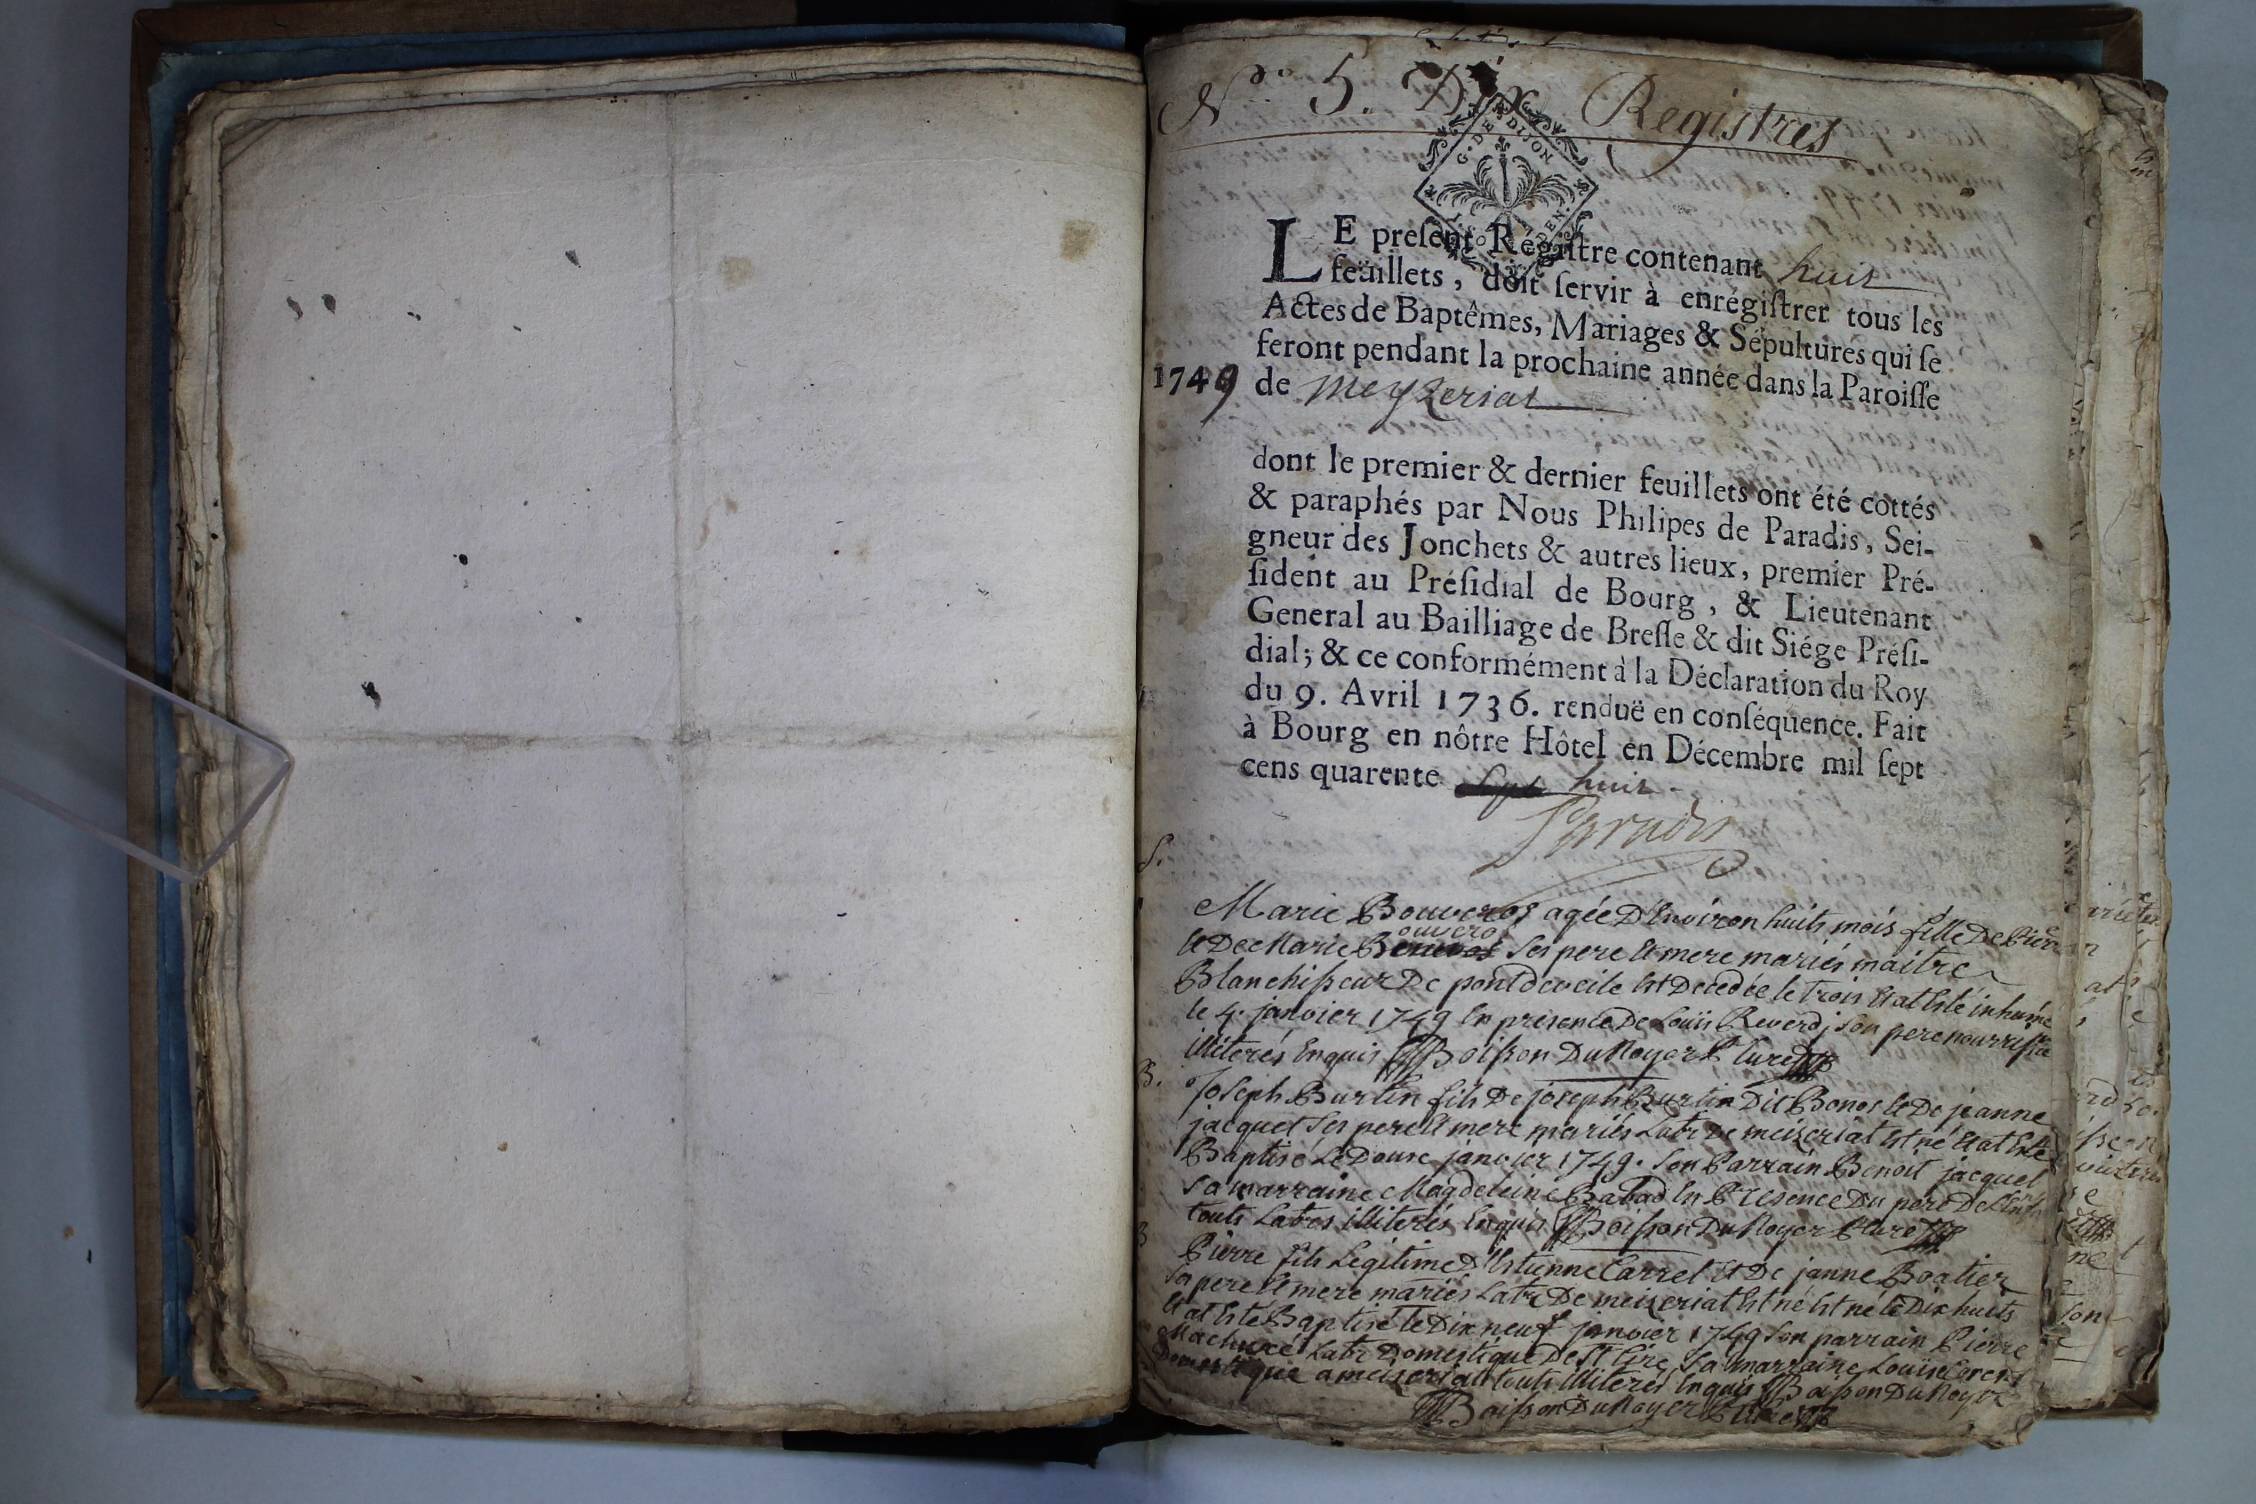 N.º 5. Dix Registres
G. DE DIJON
LE present Regiſtre contenant huit
feüillets, doit ſervir à enrégiſtrer tous les
Actes de Baptêmes, Mariages & Sépultures qui ſe
feront pendant la prochaine année dans la Paroiſſe
1749 de Meyzeriat
dont le premier & dernier feuillets ont été cottés
& paraphés par Nous Philipes de Paradis, Sei-
gneur des Jonchets & autres lieux, premier Pré-
ſident au Préſidial de Bourg, & Lieutenant
General au Bailliage de Breſſe & dit Siége Préſi-
dial; & ce conformément à la Déclaration du Roy
du 9. Avril 1736. renduë en conſéquence. Fait
à Bourg en nôtre Hôtel en Décembre mil ſept
cens quarente sept huit
Paradis
S.
Marie Bouveros agée D'Environ huits mois fille De Pierre
Et De Marie ses pere Et mere mariés maitre
Blanchisseur De pontdeveile Est Decedée le trois Et at Esté inhumé
le 4. janvier 1749 En presence De Loüis Reverdj son pere nourrissie
illiterés Enquis Boisson Du Noyer Curé
B.
Joseph Burtin fils De joseph Burtin Dit Bonos Et De jeanne
jacquet ses pere Et mere mariés Labr De meizeriat Est né Et at Esté
Baptisé Le Douse janvier 1749. son Parrain Benoit jacquet
sa marraine Magdeleine Babad En Presence Du pere De L'enfs
touts Labrs illiterés Enquis Boisson Du Noyer Curé
B
Pierre fils Legitime D'Estienne Carrel Et De janne Boatier
ses pere Et mere mariés Labr De meizeriat Est né Est né le Dix huits
Et at Esté Baptisé le Dix neuf janvier 1749 son parrain Pierre
Labr Domestique De St Cire, sa marraine Louise
Domestique a meizeriat touts illiterés Enquis Boisson Du Noyer
Boisson Du Noyer Curé